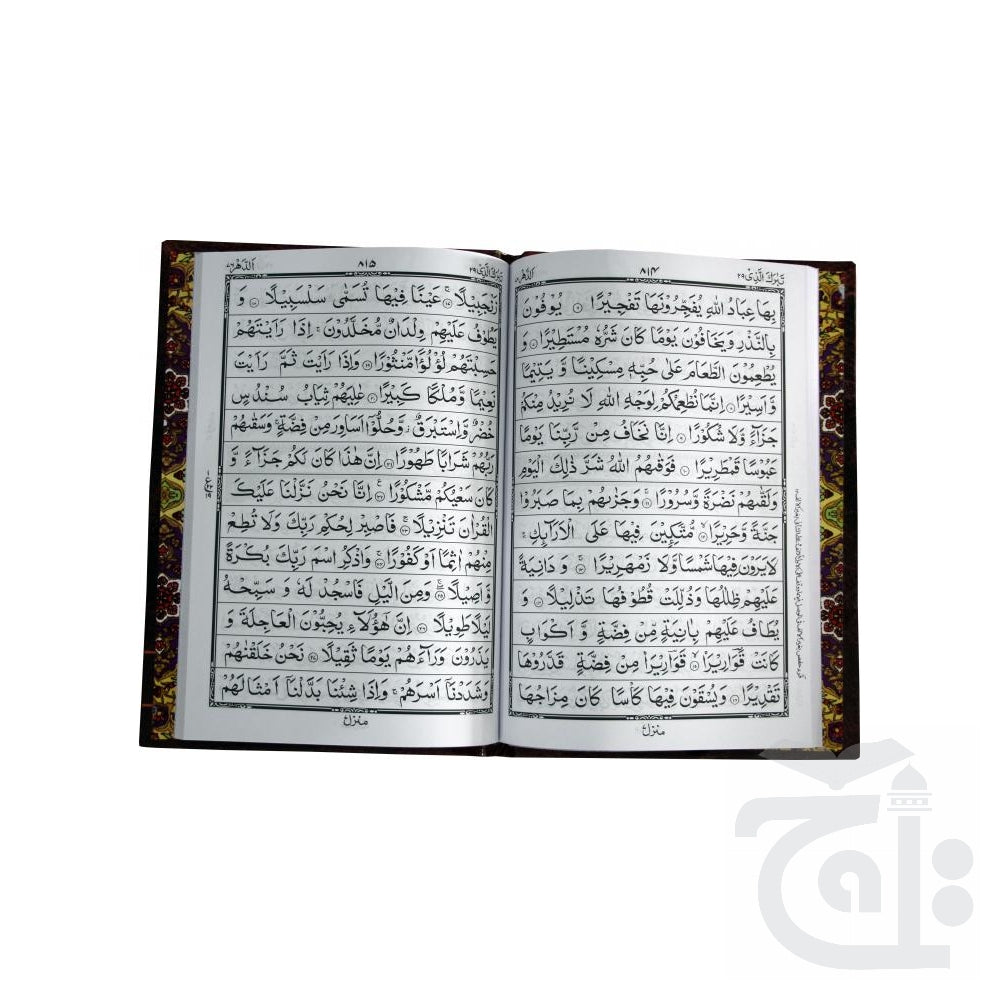 تَبٰرَكَ الَّذِیْ ۲۹
۸۱۴
اَلدَّهْر
بِهَا عِبَادُ اللّٰهِ یُفَجِّرُوْنَهَا تَفْجِیْرًا ۶ یُوْفُوْنَ
بِالنَّذْرِ وَیَخَافُوْنَ یَوْمًا كَانَ شَرُّهٗ مُسْتَطِیْرًا ۷ وَ
یُطْعِمُوْنَ الطَّعَامَ عَلٰی حُبِّهٖ مِسْكِیْنًا وَّ یَتِیْمًا
وَّ اَسِیْرًا ۸ اِنَّمَا نُطْعِمُكُمْ لِوَجْهِ اللّٰهِ لَا نُرِیْدُ مِنْكُمْ
جَزَآءً وَّ لَا شُكُوْرًا ۹ اِنَّا نَخَافُ مِنْ رَّبِّنَا یَوْمًا
عَبُوْسًا قَمْطَرِیْرًا ۱۰ فَوَقٰىهُمُ اللّٰهُ شَرَّ ذٰلِكَ الْیَوْمِ
وَلَقّٰىهُمْ نَضْرَةً وَّ سُرُوْرًا ۱۱ وَجَزٰىهُمْ بِمَا صَبَرُوْا
جَنَّةً وَّ حَرِیْرًا ۱۲ مُّتَّكِـِٕیْنَ فِیْهَا عَلَی الْاَرَآىِٕكِ
لَا یَرَوْنَ فِیْهَا شَمْسًا وَّ لَا زَمْهَرِیْرًا ۱۳ وَ دَانِیَةً
عَلَیْهِمْ ظِلٰلُهَا وَ ذُلِّلَتْ قُطُوْفُهَا تَذْلِیْلًا ۱۴ وَ
یُطَافُ عَلَیْهِمْ بِاٰنِیَةٍ مِّنْ فِضَّةٍ وَّ اَكْوَابٍ
كَانَتْ قَوَارِیْرَا۠ ۱۵ قَوَارِیْرَا۠ مِنْ فِضَّةٍ قَدَّرُوْهَا
تَقْدِیْرًا ۱۶ وَیُسْقَوْنَ فِیْهَا كَاْسًا كَانَ مِزَاجُهَا
منزل ۷
۸۱۵
اَلدَّهْر ۷۶
تَبٰرَكَ الَّذِیْ ۲۹
زَنْجَبِیْلًا ۱۷ عَیْنًا فِیْهَا تُسَمّٰی سَلْسَبِیْلًا ۱۸ وَ
یَطُوْفُ عَلَیْهِمْ وِلْدَانٌ مُّخَلَّدُوْنَ ۚ اِذَا رَاَیْتَهُمْ
حَسِبْتَهُمْ لُؤْلُؤًا مَّنْثُوْرًا ۱۹ وَاِذَا رَاَیْتَ ثَمَّ رَاَیْتَ
نَعِیْمًا وَّ مُلْكًا كَبِیْرًا ۲۰ عٰلِیَهُمْ ثِیَابُ سُنْدُسٍ
خُضْرٌ وَّ اِسْتَبْرَقٌ ؗ وَّ حُلُّوْۤا اَسَاوِرَ مِنْ فِضَّةٍ ۚ وَسَقٰىهُمْ
رَبُّهُمْ شَرَابًا طَهُوْرًا ۲۱ اِنَّ هٰذَا كَانَ لَكُمْ جَزَآءً وَّ
كَانَ سَعْیُكُمْ مَّشْكُوْرًا ۲۲ اِنَّا نَحْنُ نَزَّلْنَا عَلَیْكَ
الْقُرْاٰنَ تَنْزِیْلًا ۲۳ فَاصْبِرْ لِحُكْمِ رَبِّكَ وَلَا تُطِعْ
مِنْهُمْ اٰثِمًا اَوْ كَفُوْرًا ۲۴ وَاذْكُرِ اسْمَ رَبِّكَ بُكْرَةً
وَّ اَصِیْلًا ۲۵ وَمِنَ الَّیْلِ فَاسْجُدْ لَهٗ وَ سَبِّحْهُ
لَیْلًا طَوِیْلًا ۲۶ اِنَّ هٰۤؤُلَآءِ یُحِبُّوْنَ الْعَاجِلَةَ وَ
یَذَرُوْنَ وَرَآءَهُمْ یَوْمًا ثَقِیْلًا ۲۷ نَحْنُ خَلَقْنٰهُمْ
وَشَدَدْنَاۤ اَسْرَهُمْ ۚ وَاِذَا شِئْنَا بَدَّلْنَاۤ اَمْثَالَهُمْ
منزل ۷